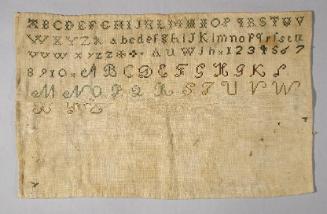 ABCDEFGHIJKLMNOPQRSTUV
WXYZ abcdefghiJKlmnopqrstu
vww xyzz AUWJh×1234567
8910× ABCDEFGHGKL
MNOPQRSTUVW
XYZ